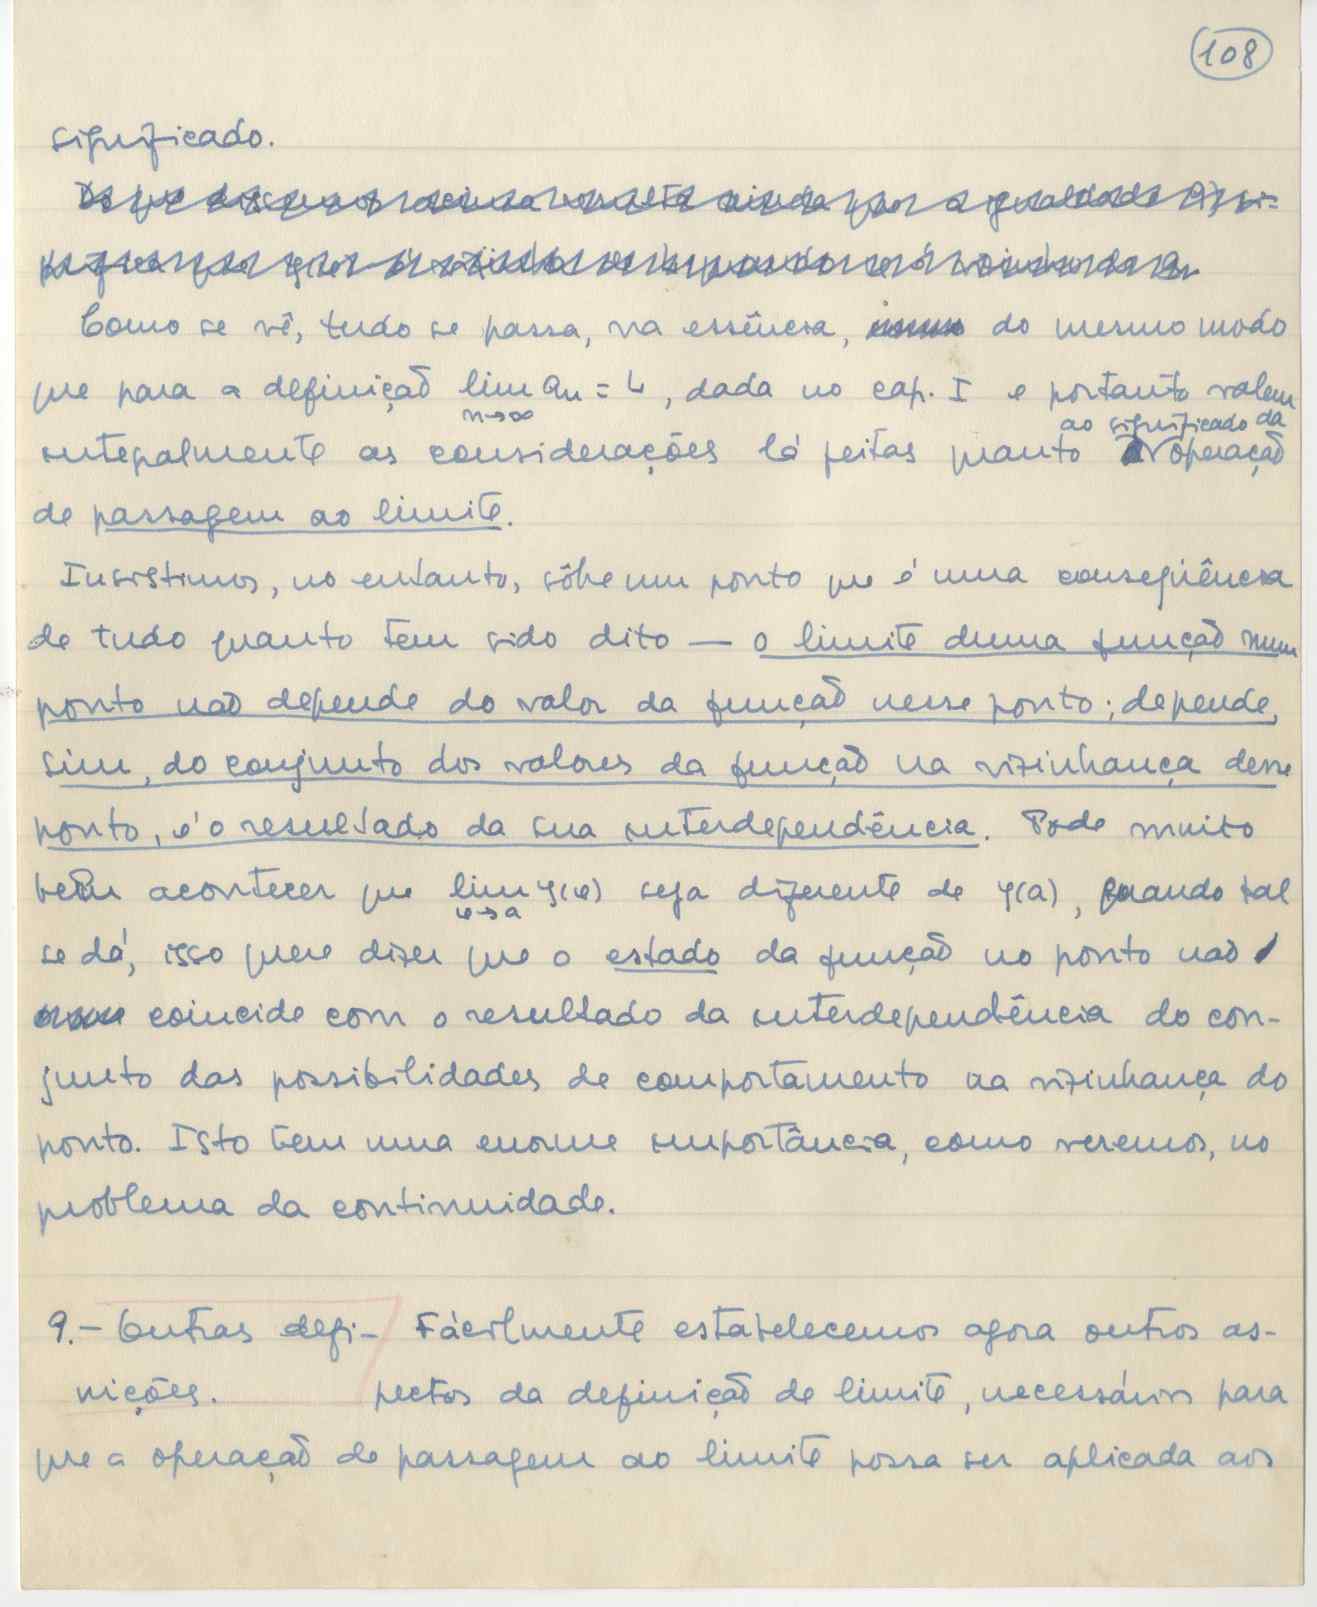 108
significado.
Como se vê, tudo se passa, na essência, do mesmo modo
que para a definição lim aₙ = L, dada no cap. I e portanto valem
n→∞
ao significado da
integralmente as considerações lá feitas quanto operação
de passagem ao limite.
Insistimos, no entanto, sôbre um ponto que é uma conseqüência
de tudo quanto tem sido dito — o limite duma função num
ponto não depende do valor da função nesse ponto; depende,
sim, do conjunto dos valores da função na vizinhança desse
ponto, é o resultado da sua interdependência. Pode muito
bem acontecer que lim y(x) seja diferente de y(a), quando tal
x→a
se dá, isso quere dizer que o estado da função no ponto não
coincide com o resultado da interdependência do con-
junto das possibilidades de comportamento na vizinhança do
ponto. Isto tem uma enorme importância, como veremos, no
problema da continuidade.
9.- Outras defi- Fácilmente estabelecemos agora outros as-
nições. pectos da definição de limite, necessários para
que a operação de passagem ao limite possa ser aplicada aos